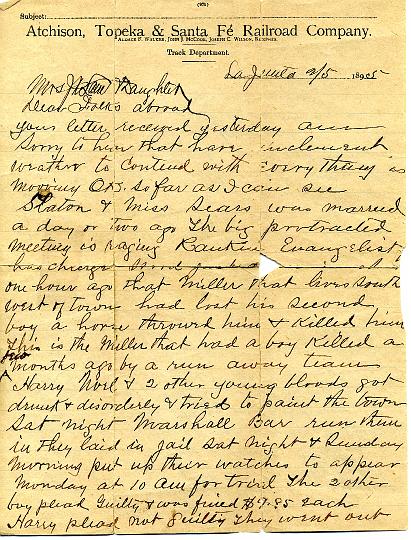 Subject:
Atchison, Topeka & Santa Fé Railroad Company.
ALDACE F. WALKER, JOHN J. McCOOK, JOSEPH C. WILSON, RECEIVERS.
Track Department.
La Junta 2/5 1895
Mrs & Daughter
Dear Folks abroad
your letter received yesterday am
Sorry to hear that have inclement
weather to contend with everything is
mooving O.K. so far as I can see
Slaton & Miss Sears was married
a day or two ago The big protracted
meeting is raging Rankin Evangelist
has charge Word
one hour ago that Miller that lives south
west of town had lost his second
boy a horse throwed him & Killed him
This is the Miller that had a boy Killed a
two
months ago by a run away team
Harry Noel & 2 other young bloods got
drunk & disorderly & tried to paint the town
Sat night Marshall Bar run them
in They laid in jail Sat night & Sunday
Morning put up their watches to appear
Monday at 10 am for trial The 2 other
boy plead Guilty & was fined $9.85 each
Harry plead not guilty They went out